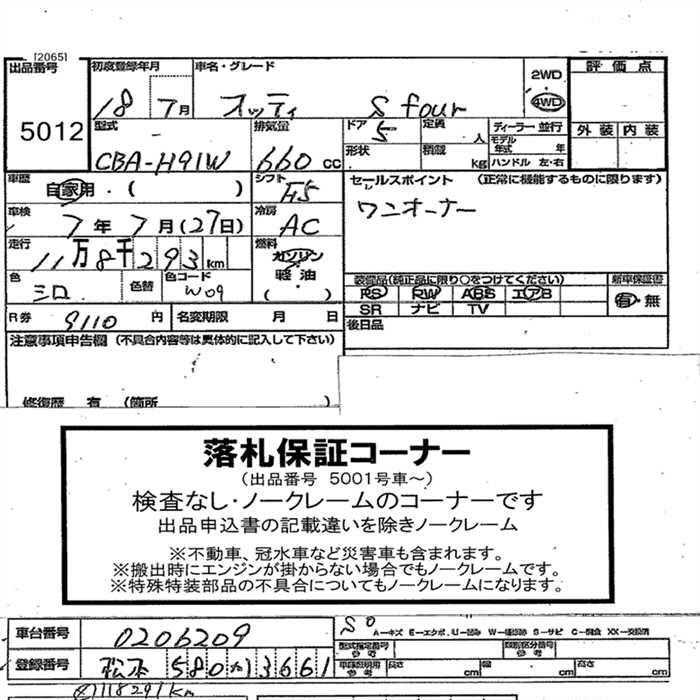 [20651
出品番号 初度登録年月 車名・グレード 2WD 評価点
5012 18 7月 オッティ S four 4WD
型式 排気量 ドア 定員 ディーラー 並行 外装 内装
CBA-H91W 660 CC 5 人 モデル年式 年
形状 積載 kg ハンドル 左・右
車歴 自家用・( ) シフト F5 セールスポイント (正常に機能するものに限ります)
車検 7年7月(27日) 冷房 AC ワンオーナー
走行 11万8千293km 燃料 ガソリン
軽油
( )
色 シロ 色替 色コード W09 装備品(純正品に限り○をつけてください) 新車保証書
PS PW ABS エアB 有・無
SR ナビ TV
R券 9110円 名変期限 月 日 後日品
注意事項申告欄 (不具合内容等は具体的に記入して下さい)
修復歴 有 (箇所 )
落札保証コーナー
(出品番号 5001号車～)
検査なし・ノークレームのコーナーです
出品申込書の記載違いを除きノークレーム
※不動車、冠水車など災害車も含まれます。
※搬出時にエンジンが掛からない場合でもノークレームです。
※特殊特装部品の不具合についてもノークレームになります。
車台番号 0206209 A－キズ E－エクボ U－凹み W－補修跡 S－サビ C－腐食 XX－交換済
型式指定番号 参考 類別区分番号 参考
登録番号 松本 580 か 3661 車庫証明用 参考 長さ cm 幅 cm 高さ cm
118291km